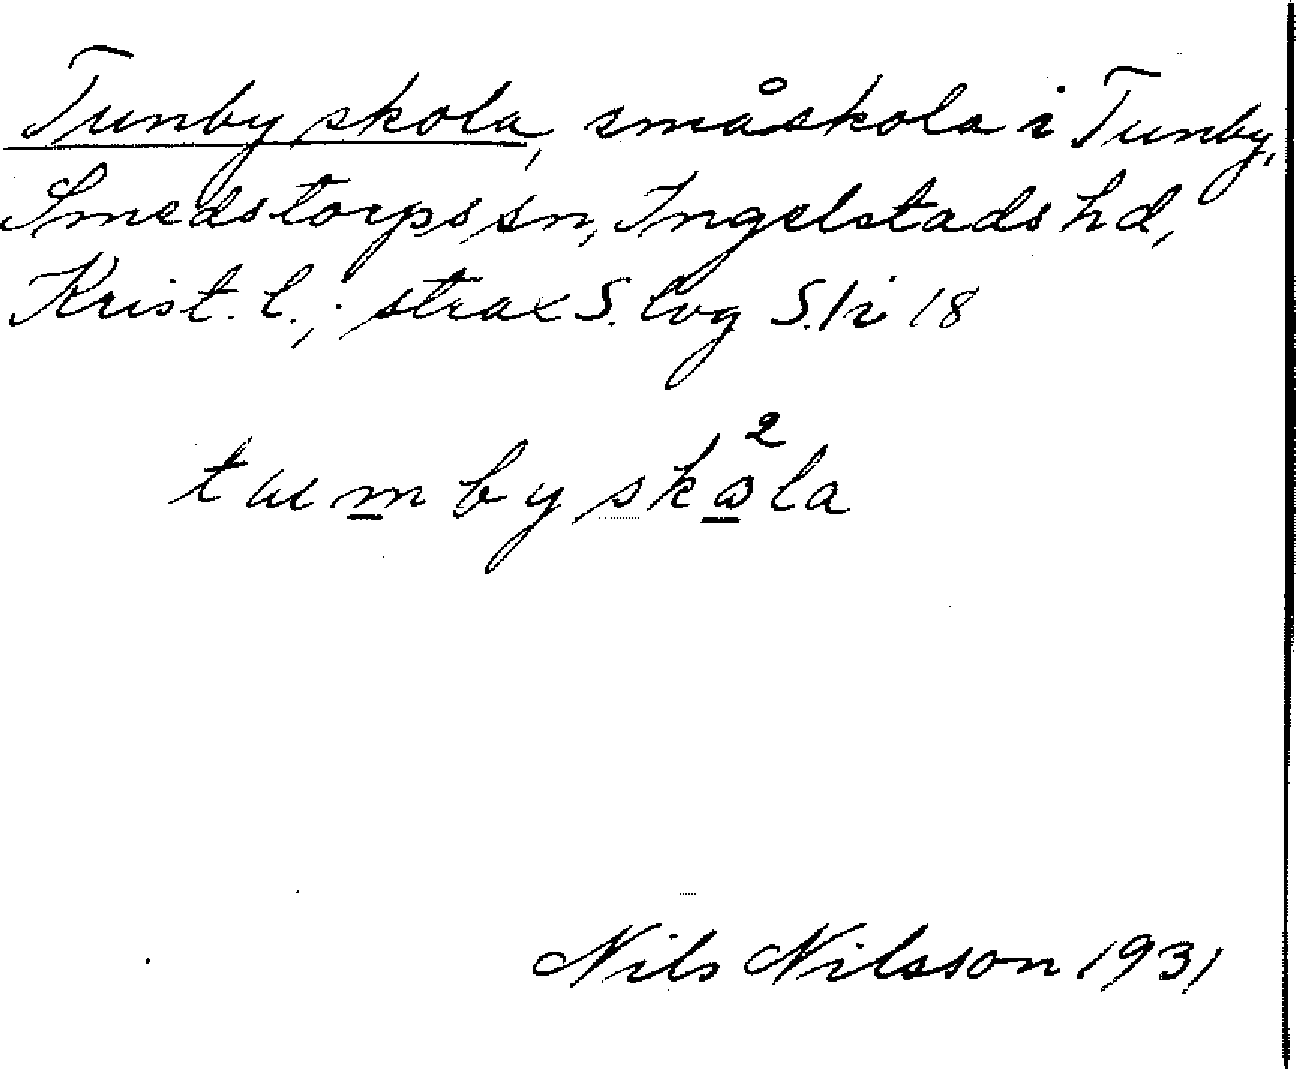 Tunby skola, småskola i Tunby,
Smedstorps sn, Ingelstads hd,
Krist. l.; strax S. lvg S. 18
tɯmbyskɷ²la
Nils Nilsson 1931